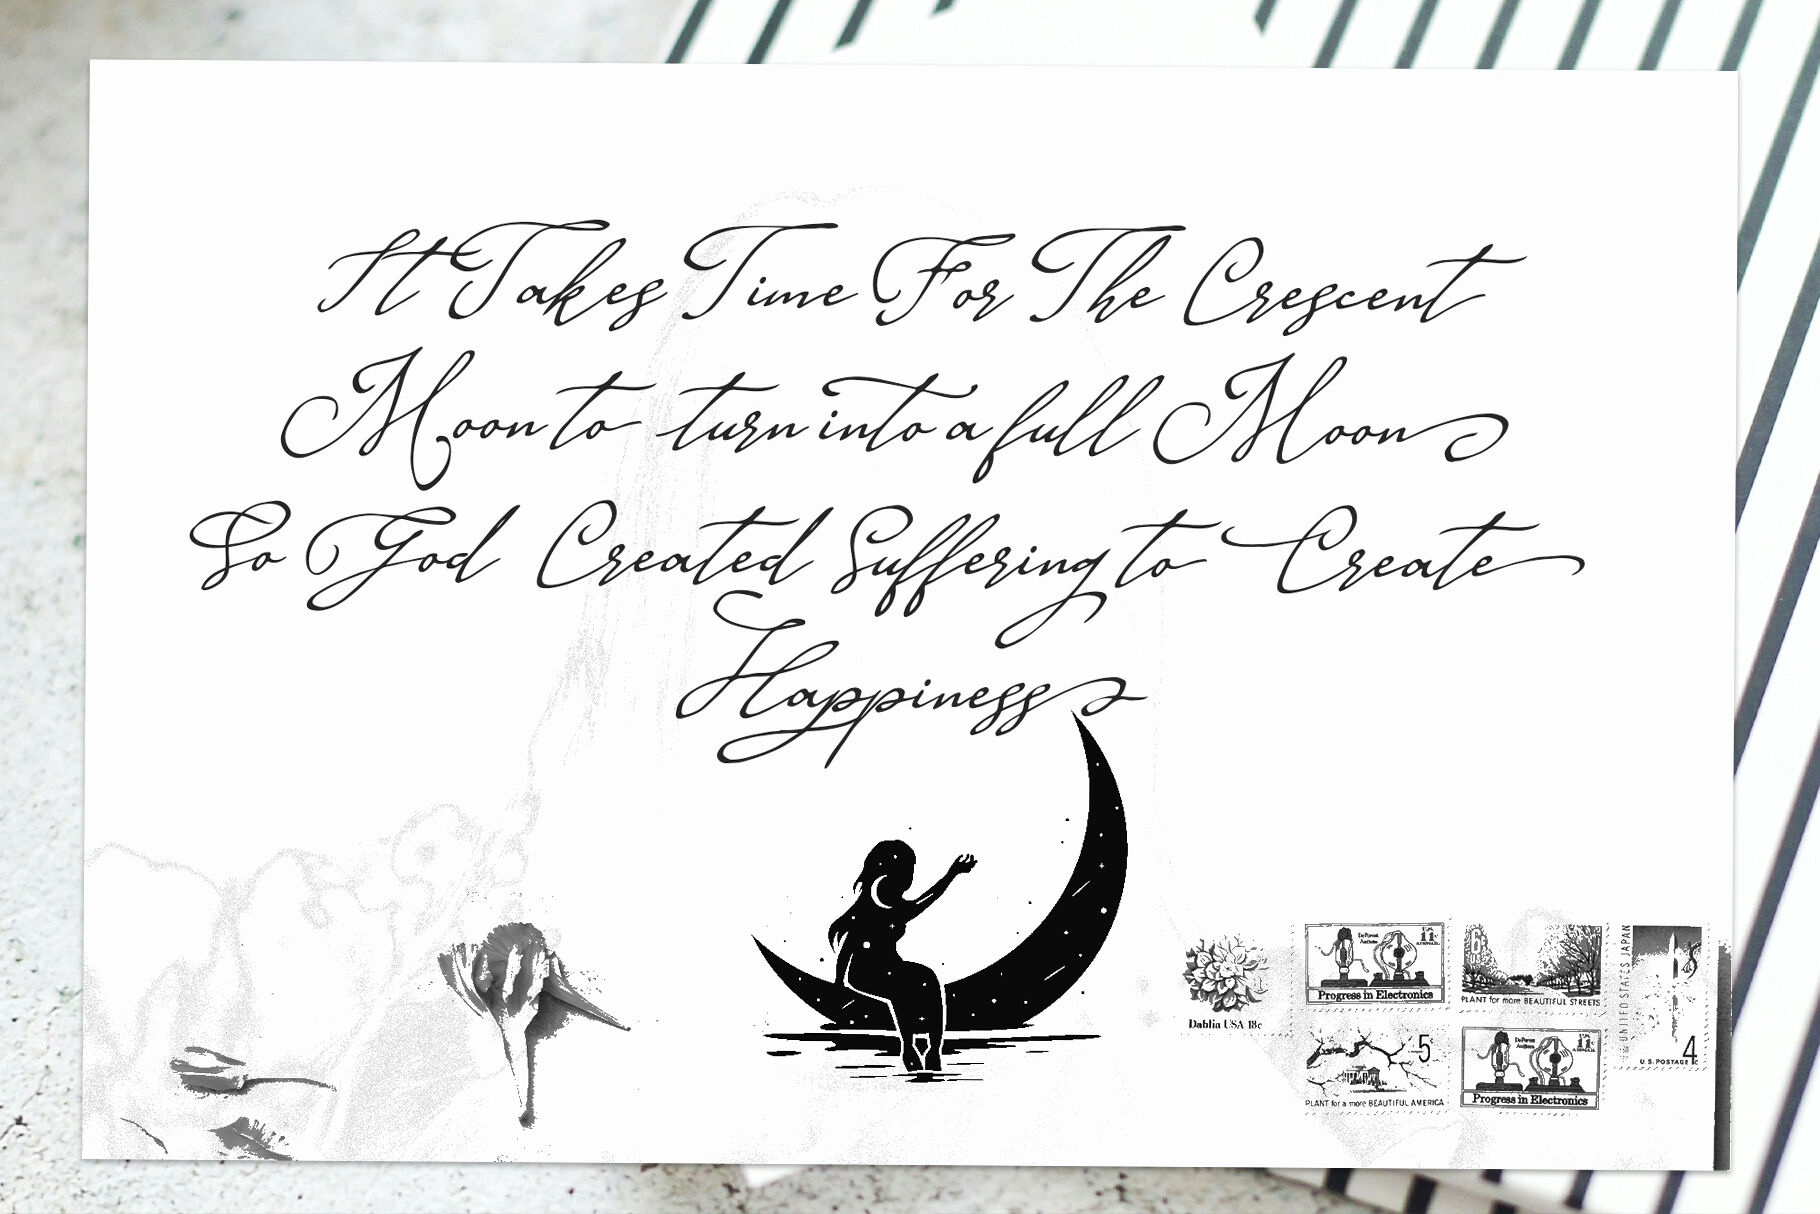 It Takes Time For The Crescent
Moon to turn into a full Moon
So God Created Suffering to Create
Happiness
Dahlia USA 18c
De Forest Audions
U.S. 11c AIRMAIL
Progress in Electronics
6c
PLANT for more BEAUTIFUL STREETS
UNITED STATES JAPAN
5c
PLANT for a more BEAUTIFUL AMERICA
De Forest Audions
11c
Progress in Electronics
U.S. POSTAGE 4c